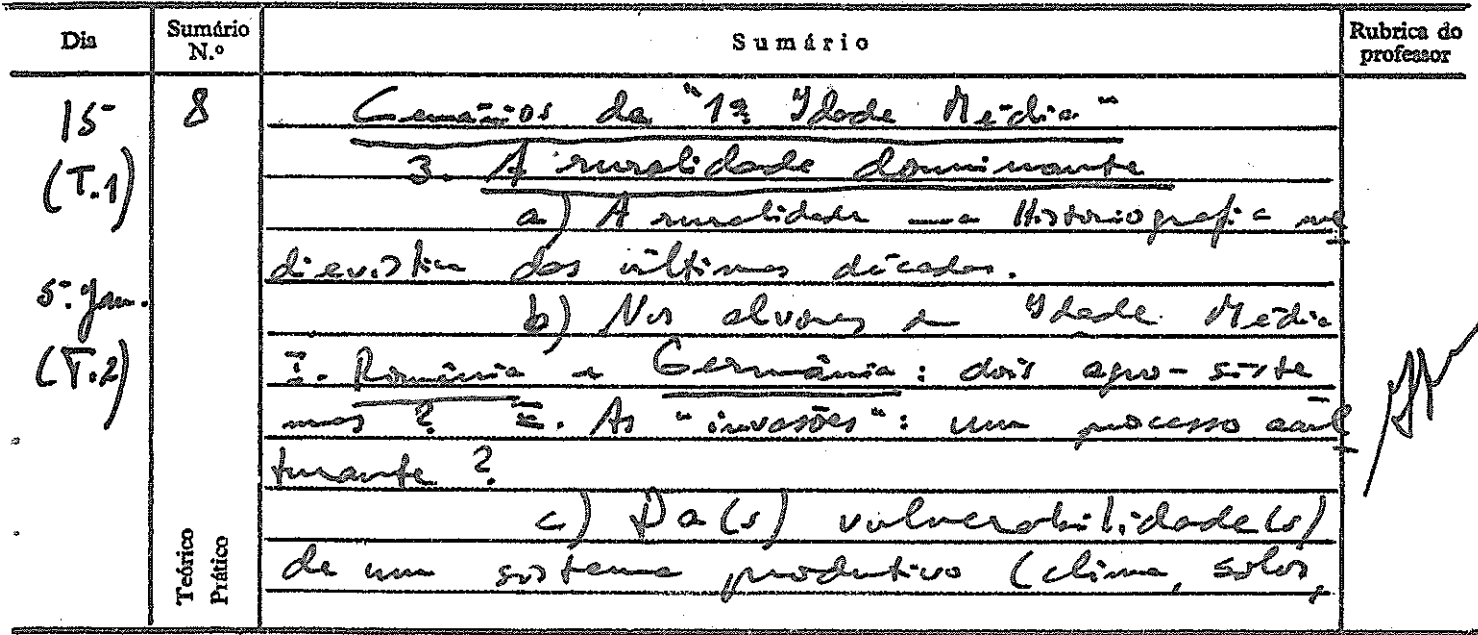 Dia Sumário N.º Sumário Rubrica do professor
15 8 Cenários da "1ª Idade Média"
(T.1) 3. A ruralidade dominante
a) A ruralidade na Historiografia me
dievística das últimas décadas.
5. Jan. b) Nos alvores da Idade Média
(T.2) I. Români­a e Germânia: dois agro-siste
mas? II. As "invasões": um processo acul
turante?
c) Da(s) vulnerabilidade(s)
de um sistema produtivo (clima, solos,
Teórico
Prático